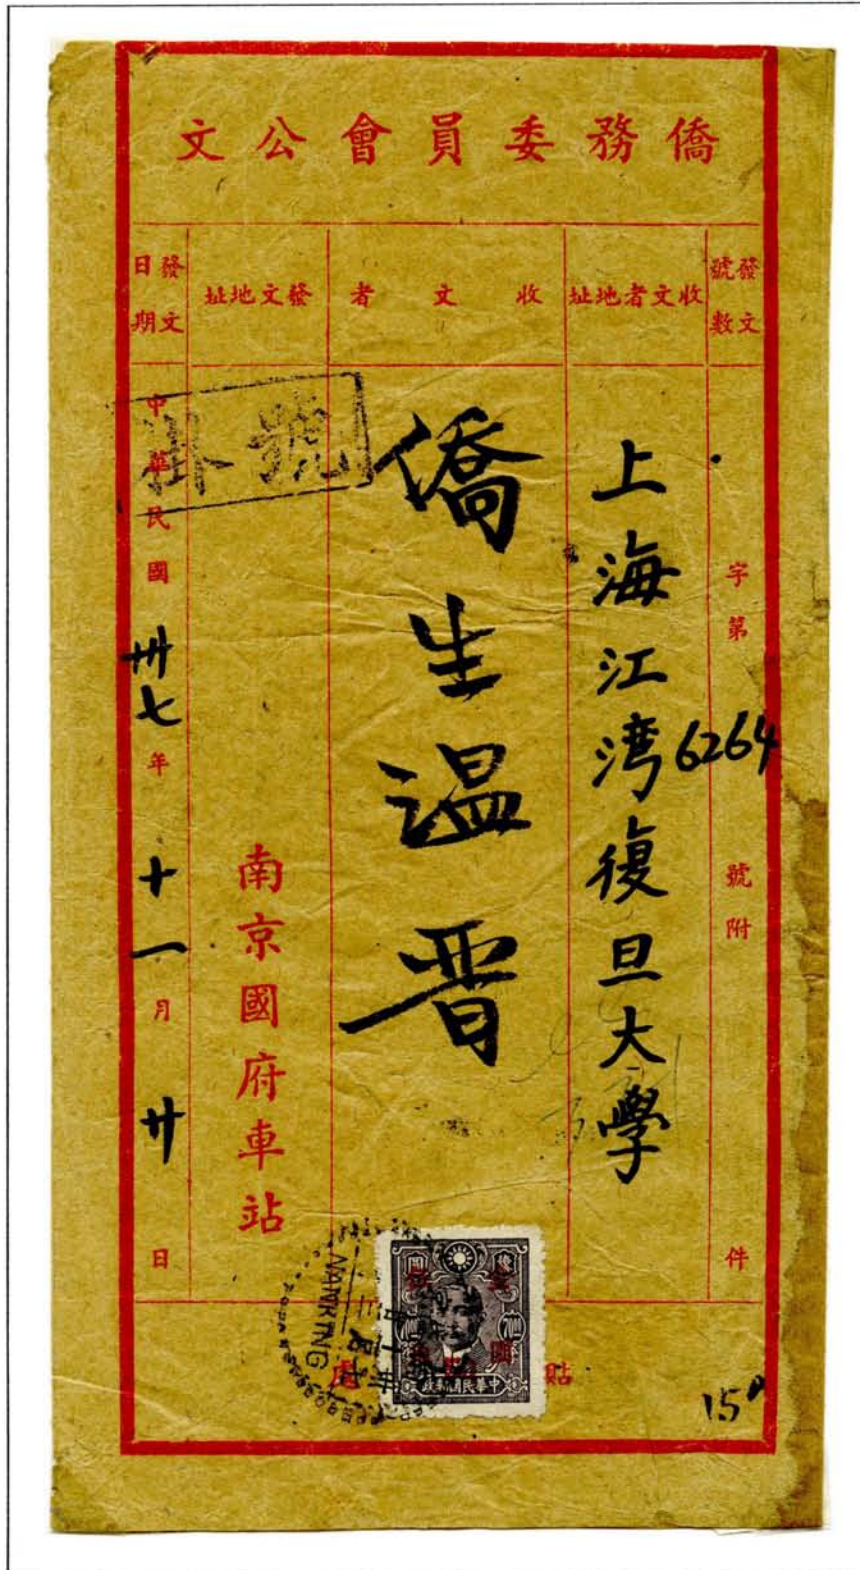 僑務委員會公文
發文號數
收文者地址
收文者
發文地址
發文日期
字第6264號附件
上海江湾復旦大學
僑生温晋
南京國府車站
中華民國卅七年十一月廿日
掛號
NANKING
中華民國郵政
貼
15